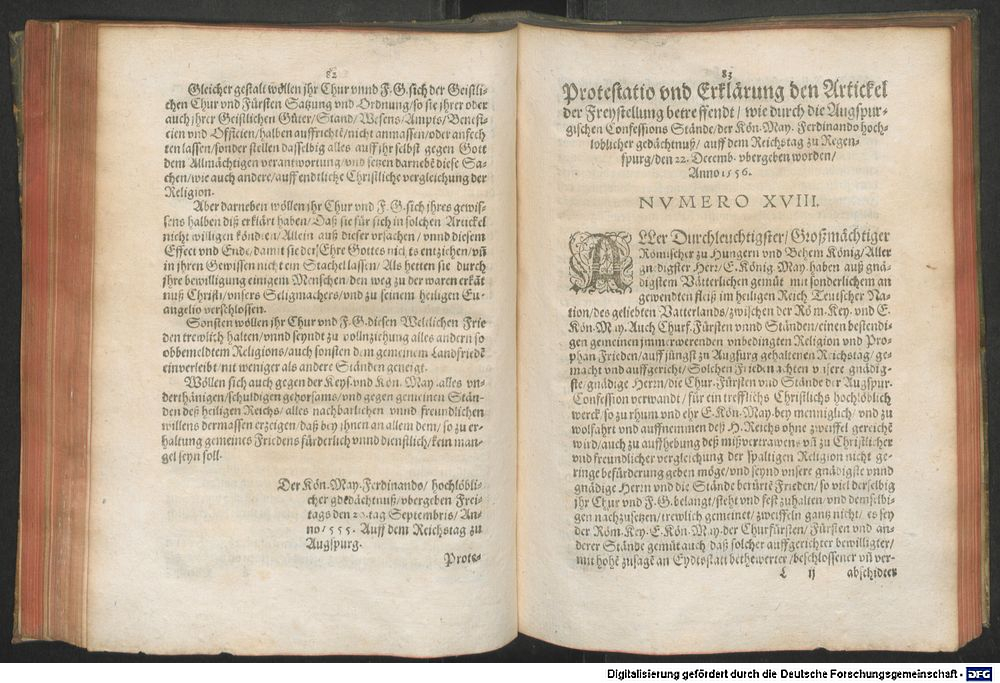 82
Gleicher gestalt wöllen jhr Chur vnnd F. G. sich der Geistli-
chen Chur vnd Fürsten Satzung vnd Ordnung/ so sie jhrer oder
auch jhrer Geistlichen Güter/ Stand/ Wesens/ Ampts/ Benefi-
cien vnd Officien/ halben auffrichtē/ nicht anmassen/ oder anfech
ten lassen/ sonder stellen dasselbig alles auff jhr selbst gegen Gott
dem Allmächtigen verantwortung/ vnd setzen darnebē diese Sa-
chen/ wie auch andere/ auff endtliche Christliche vergleichung der
Religion.
Aber darneben wöllen jhr Chur vnd F. G. sich jhres gewis-
sens halben diß erklärt haben/ Daß sie für sich in solchen Artickel
nicht willigen köndten/ Allein auß dieser vrsachen/ vnnd diesem
Effect vnd Ende/ damit sie der Ehre Gottes nichts entziehen/ vñ
in jhren Gewissen nicht ein Stachel lassen/ Als hetten sie durch
jhre bewilligung einigem Menschen/ den weg zu der waren erkät
nuß Christi/ vnsers Seligmachers/ vnd zu seinem heiligen Eu-
angelio verschlossen.
Sonsten wöllen jhr Chur vnd F. G. diesen Weltlichen Frie
den trewlich halten/ vnnd seyndt zu vollnziehung alles andern so
obbemeldtem Religions/ auch sonsten dem gemeinem Landfriedē
einverleibt/ nit weniger als andere Ständen geneigt.
Wöllen sich auch gegen der Keys. vnd Kön. May. alles vn-
derthänigen/ schuldigen gehorsams/ vnd gegen gemeinen Stän-
den deß heiligen Reichs/ alles nachbarlichen vnnd freundlichen
willens dermassen erzeigen/ daß bey jhnen an allem dem/ so zu er-
haltung gemeines Friedens fürderlich vnnd dienstlich/ kein man-
gel seyn soll.
Der Kön. May. Ferdinando/ hochlöbli-
cher gdedächtnuß/ vbergeben Frei-
tags den 20. tag Septembris/ An-
no/ 555. Auff dem Reichstag zu
Augspurg.
Prote-
83
Protestatio vnd Erklärung den Artickel
der Freystellung betreffendt/ wie durch die Augspur-
gischen Confessions Stände/ der Kön. May. Ferdinando hoch-
loblicher gedächtnuß/ auff dem Reichstag zu Regen-
spurg/ den 22. Decemb. vbergeben worden/
Anno 1556.
NVMERO XVIII.
ALler Durchleuchtigster/ Großmächtiger
Römischer zu Hungern vnd Behem König/ Aller
gnädigster Herr/ E. König. May. haben auß gnä-
digstem Vätterlichen gemüt mit sonderlichem an
gewendten fleiß im heiligen Reich Teutscher Na-
tion/ des geliebten Vatterlands/ zwischen der Röm. Key. vnd E.
Kön. May. Auch Churf. Fürsten vnnd Ständen/ einen bestendi-
gen gemeinen jmmerwerenden vnbedingten Religion vnd Pro-
phan Frieden/ auff jüngst zu Augspurg gehaltenen Reichstag/ ge-
macht vnd auffgericht/ Solchen Frieden achten vnsere gnädig-
ste/ gnädige Herrn/ die Chur. Fürsten vnd Stände der Augspur.
Confession verwandt/ für ein trefflichs Christlichs hochlöblich
werck/ so zu rhum vnd ehr E. Kön. May. bey menniglich/ vnd zu
wolfahrt vnd auffnemmen deß H. Reichs ohne zweiffel gereichē
wird/ auch zu auffhebung deß mißvertrawens vñ zu Christlicher
vnd freundlicher vergleichung der spaltigen Religion nicht ge-
ringe befürderung geben möge/ vnd seynd vnsere gnädigste vnnd
gnädige Herrn vnd die Stände berürtē Frieden/ so viel derselbig
jhr Chur vnd F. G. belangt/ steht vnd fest zuhalten/ vnd demselbi-
gen nachzusetzen/ trewlich gemeinet/ zweiffeln gantz nicht/ es sey
der Röm. Key. E. Kön. May. der Churfürsten/ Fürsten vnd an-
derer Stände gemüt auch daß solcher auffgerichter bewilligter/
mit hohē zusagē an Eydtsstatt bethewerter/ beschlossener vñ ver-
L ij abschidter
Digitalisierung gefördert durch die Deutsche Forschungsgemeinschaft - DFG